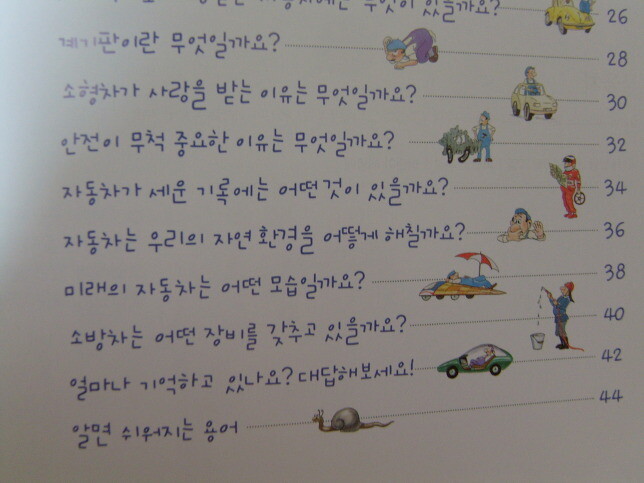 자동차에는 무엇이 있을까요? 26
계기판이란 무엇일까요? 28
소형차가 사랑을 받는 이유는 무엇일까요? 30
안전이 무척 중요한 이유는 무엇일까요? 32
자동차가 세운 기록에는 어떤 것이 있을까요? 34
자동차는 우리의 자연 환경을 어떻게 해칠까요? 36
미래의 자동차는 어떤 모습일까요? 38
소방차는 어떤 장비를 갖추고 있을까요? 40
얼마나 기억하고 있나요? 대답해보세요! 42
알면 쉬워지는 용어 44